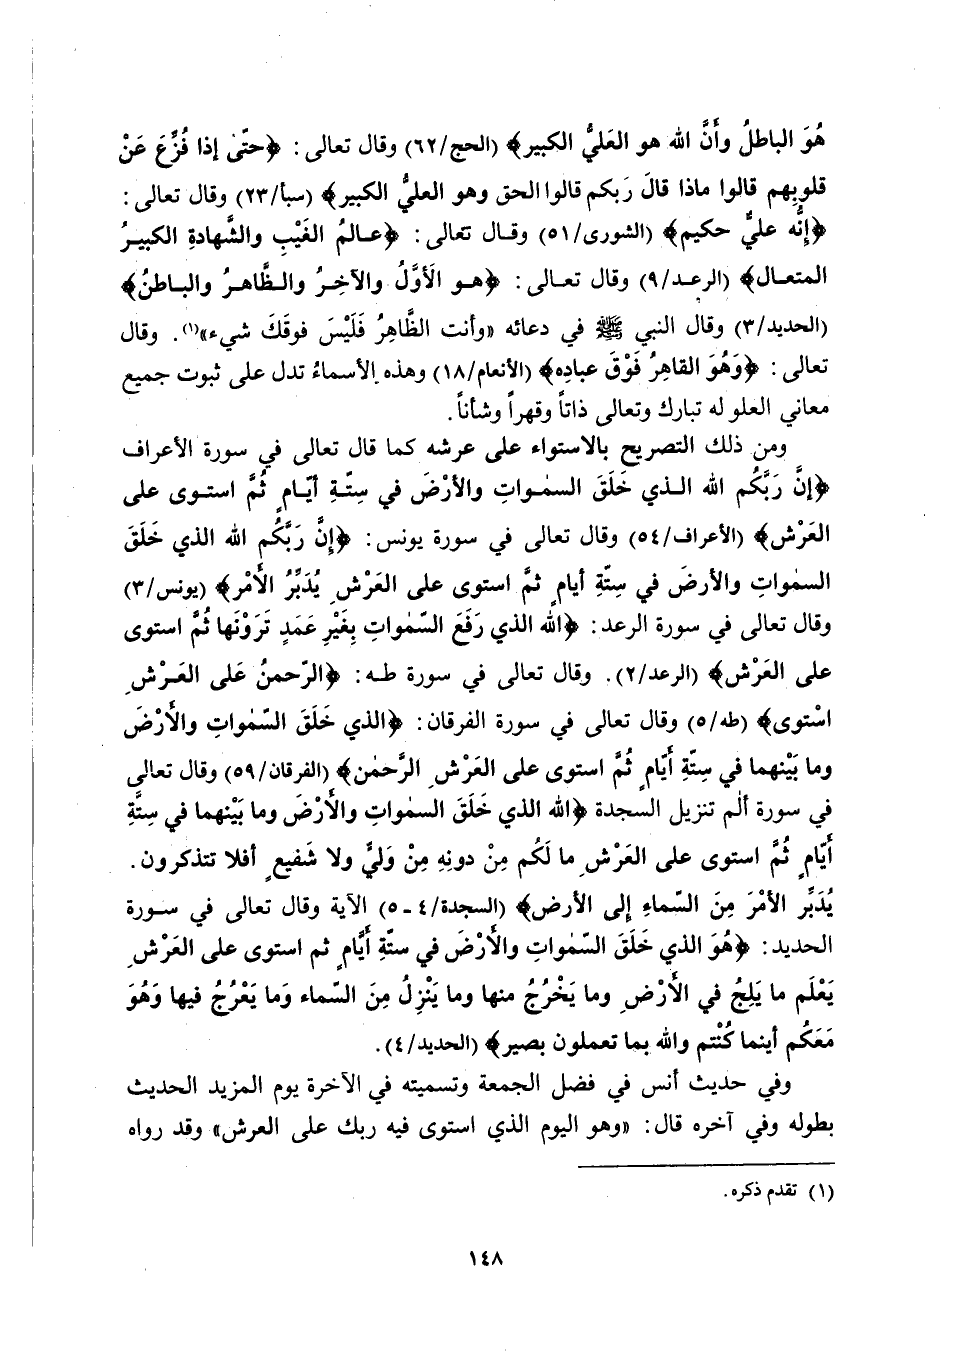 هُوَ الباطلُ وأَنَّ الله هو العَليُّ الكبير﴾ (الحج/٦٢) وقال تعالى: ﴿حتّىٰ إذا فُزِّعَ عَنْ
قلوبِهم قالوا ماذا قالَ رَبكم قالوا الحق وهو العليُّ الكبير﴾ (سبأ/٢٣) وقال تعالى:
﴿إنُّه عليٌّ حكيم﴾ (الشورى/٥١) وقـال تعالى: ﴿عـالمُ الغَيْبِ والشَّهادةِ الكبيـرُ
المتعـال﴾ (الرعـد/٩) وقال تعـالى: ﴿هـو الَأوَّلُ والآخِـرُ والـظَّاهـرُ والبـاطنُ﴾
(الحديد/٣) وقال النبي ﷺ في دعائه «وأنت الظَّاهِرُ فَلَيْسَ فوقَكَ شيء»(١). وقال
تعالى: ﴿وَهُوَ القاهِرُ فَوْقَ عبادِه﴾ (الأنعام/١٨) وهذه الأسماءُ تدل على ثبوت جميع
معاني العلو له تبارك وتعالى ذاتاً وقهراً وشأناً.
ومن ذلك التصريح بالاستواء على عرشه كما قال تعالى في سورة الأعراف
﴿إنَّ رَبَّكُم الله الـذي خَلَقَ السمٰـواتِ والأرْضَ في سِتَّـةِ أيّـامٍ ثُمَّ استـوى على
العَرْش﴾ (الأعراف/٥٤) وقال تعالى في سورة يونس: ﴿إنَّ رَبَّكُم الله الذي خَلَقَ
السمٰواتِ والأرضَ في سِتَّةِ أيامٍ ثمَّ استوى على العَرْشِ يُدَبِّرُ الَأمْر﴾ (يونس/٣)
وقال تعالى في سورة الرعد: ﴿الله الذي رَفَعَ السّمٰواتِ بِغَيْرِ عَمَدٍ تَرَوْنَها ثُمَّ استوى
على العَرْش﴾ (الرعد/٢). وقال تعالى في سورة طـه: ﴿الرّحمنُ عَلى العَـرْشِ
اسْتوى﴾ (طه/٥) وقال تعالى في سورة الفرقان: ﴿الذي خَلَقَ السَّمٰواتِ والَأرْضَ
وما بَيْنهما في سِتَّةِ أَيّامٍ ثُمَّ استوى على العَرْشِ الرَّحمٰن﴾ (الفرقان/٥٩) وقال تعالى
في سورة ألٓم تنزيل السجدة ﴿الله الذي خَلَقَ السمٰواتِ والَأرْضَ وما بَيْنهما في سِتَّةِ
أَيّامٍ ثُمَّ استوى على العَرْشِ ما لَكُم مِنْ دونِهِ مِنْ وَليٍّ ولا شَفيعٍ أفلا تتذكرون.
يُدَبِّر الأمْرَ مِنَ السّماءِ إلى الأرض﴾ (السجدة/٤ ـ ٥) الآية وقال تعالى في سـورة
الحديد: ﴿هُوَ الذي خَلَقَ السّمٰواتِ والَأرْضَ في ستّةِ أيَّامٍ ثم استوى على العَرْشِ
يَعْلَم ما يَلِجُ في الَأرْضِ وما يَخْرُجُ منها وما يَنْزِلُ مِنَ السّماء وَما يَعْرُجُ فيها وَهُوَ
مَعَكُم أينما كُنْتم والله بما تعملون بصير﴾ (الحديد/٤).
وفي حديث أنس في فضل الجمعة وتسميته في الآخرة يوم المزيد الحديث
بطوله وفي آخره قال: «وهو اليوم الذي استوى فيه ربك على العرش» وقد رواه
(١) تقدم ذكره.
١٤٨